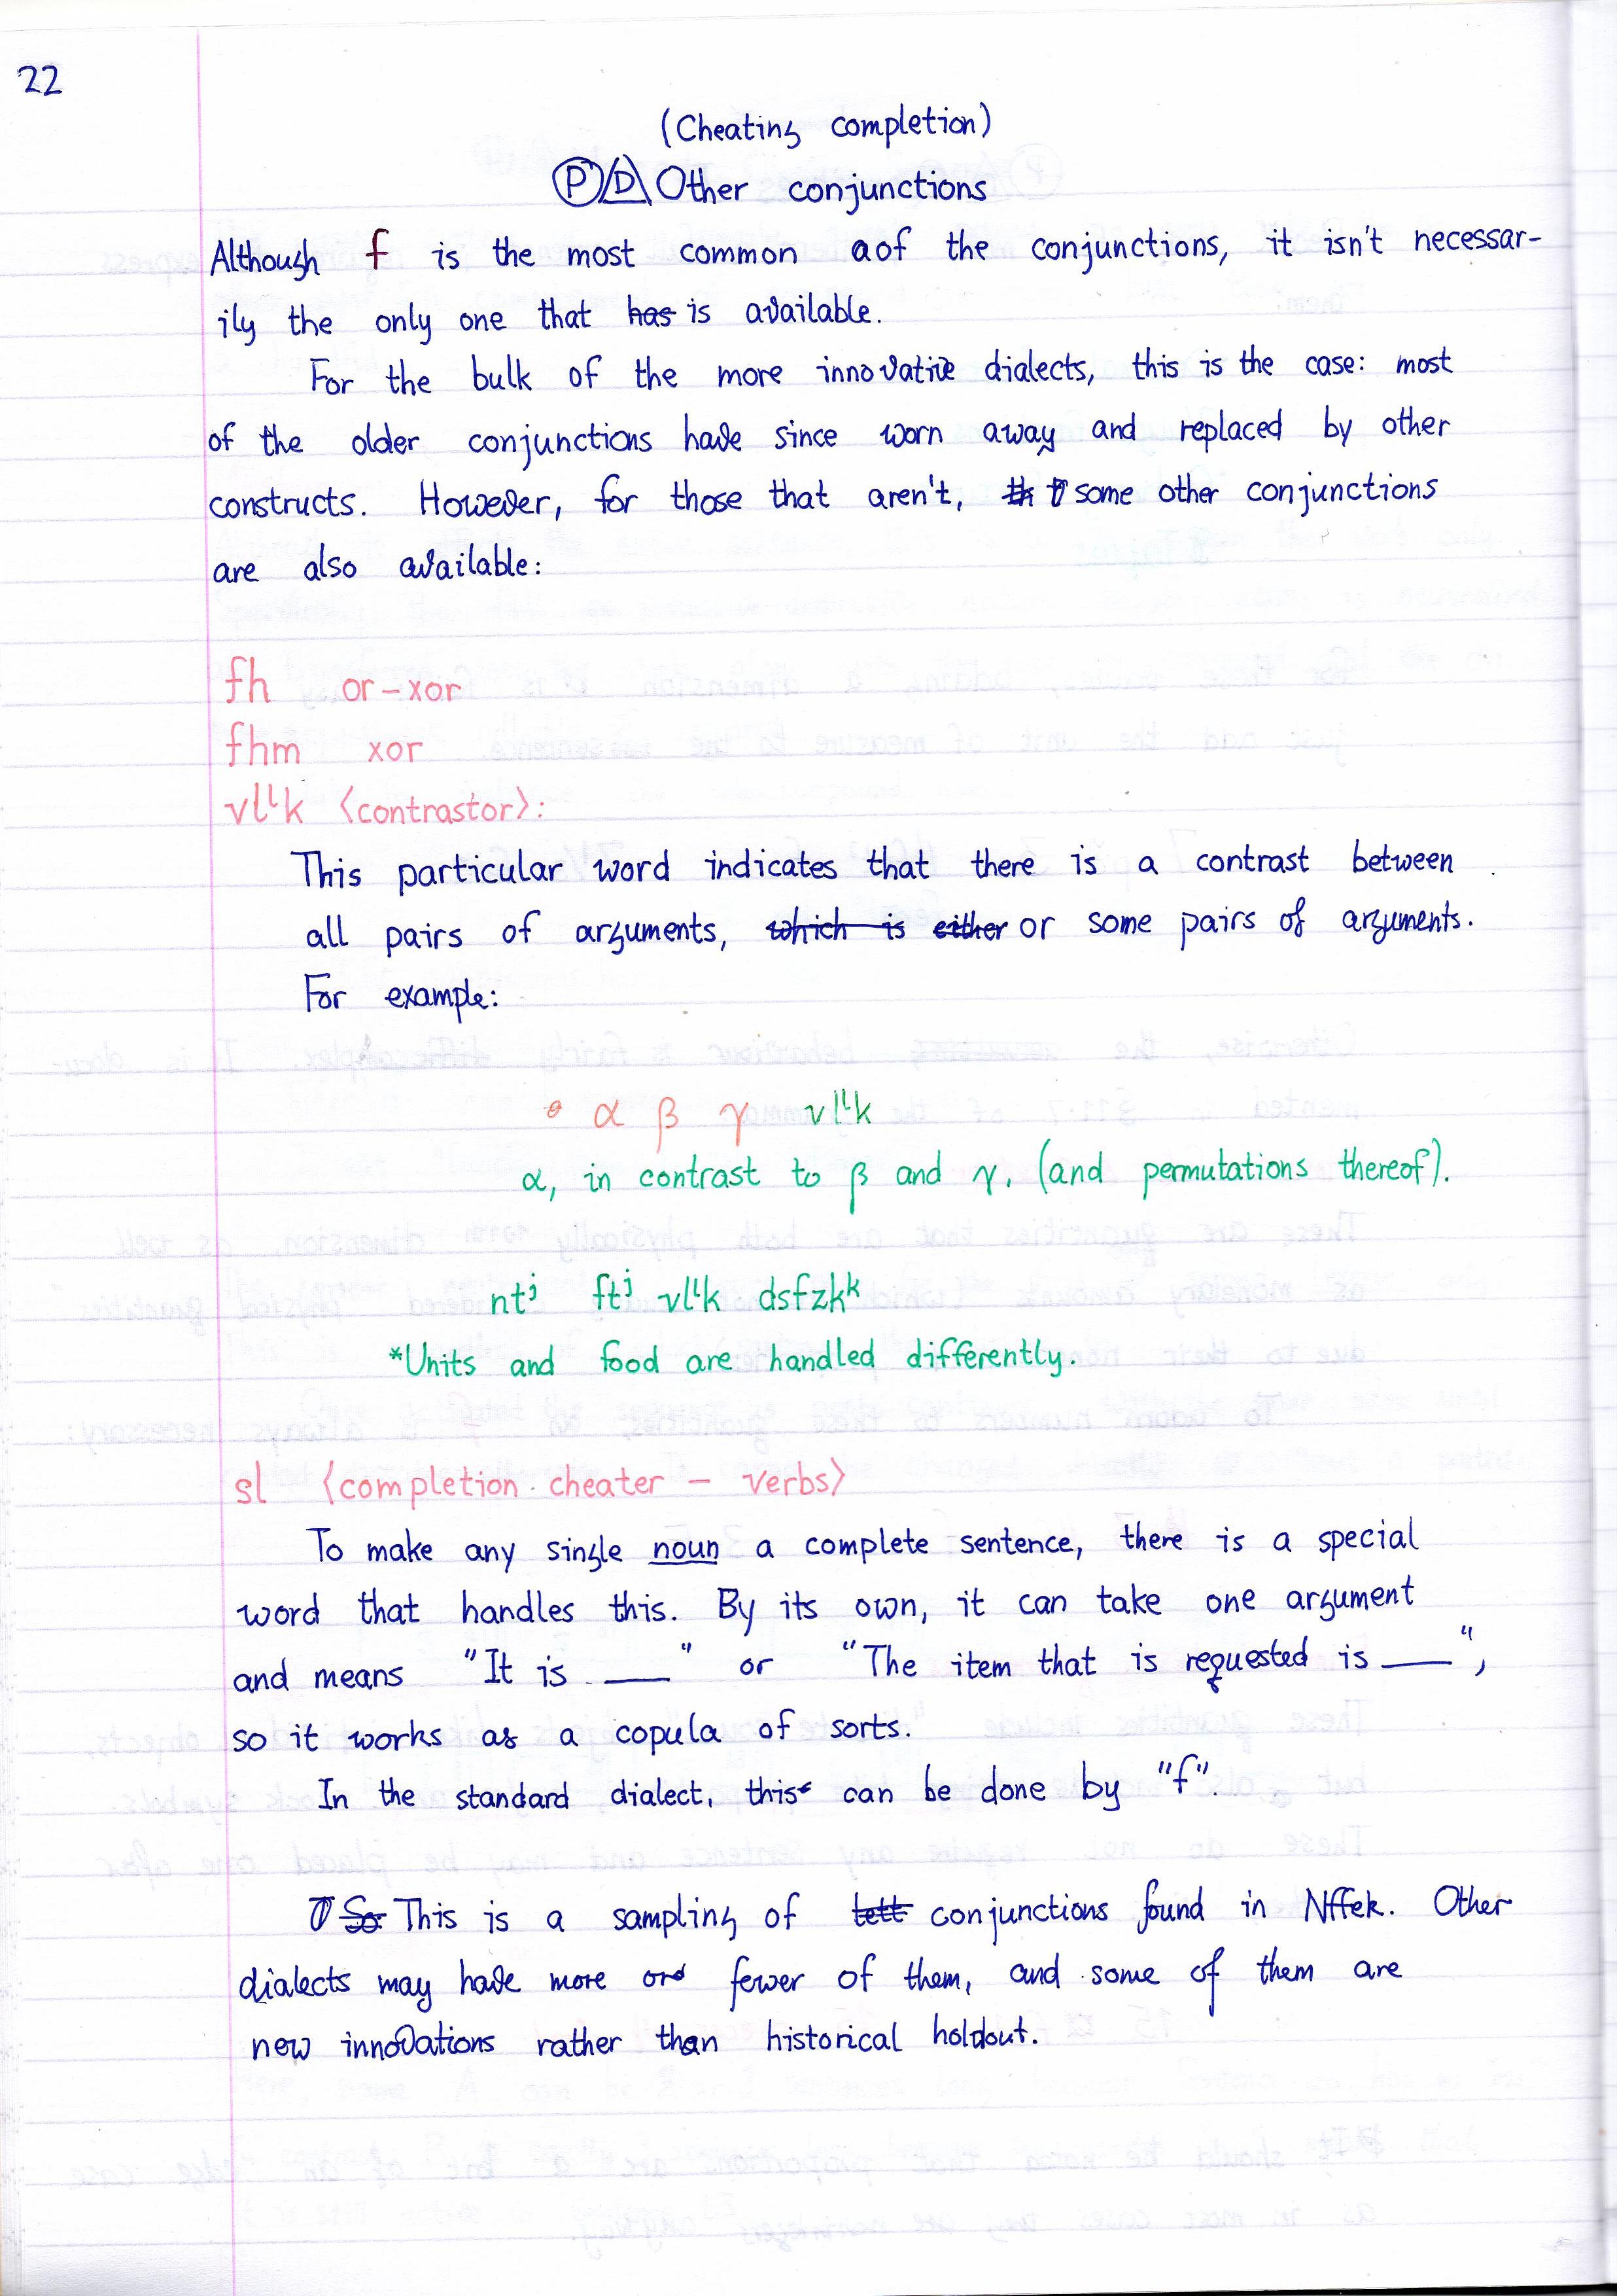 22
(Cheating completion)
Ⓟ D Other conjunctions
Although f is the most common aof the conjunctions, it isn't necessar-
ily the only one that has is available.
For the bulk of the more innovative dialects, this is the case: most
of the older conjunctions have since worn away and replaced by other
constructs. However, for those that aren't, th some other conjunctions
are also available:
fh or-xor
fhm xor
vlᶫk ⟨contrastor⟩:
This particular word indicates that there is a contrast between
all pairs of arguments, which is either or some pairs of arguments.
For example:
α β γ vlᶫk
α, in contrast to β and γ, (and permutations thereof).
ntʲ ftʲ vlᶫk dsfzkᵏ
*Units and food are handled differently.
sl ⟨completion cheater – verbs⟩
To make any single noun a complete sentence, there is a special
word that handles this. By its own, it can take one argument
and means "It is ___" or "The item that is requested is ___",
so it works as a copula of sorts.
In the standard dialect, this can be done by "f".
So This is a sampling of tett conjunctions found in Nffek. Other
dialects may have more or fewer of them, and some of them are
new innovations rather than historical holdout.